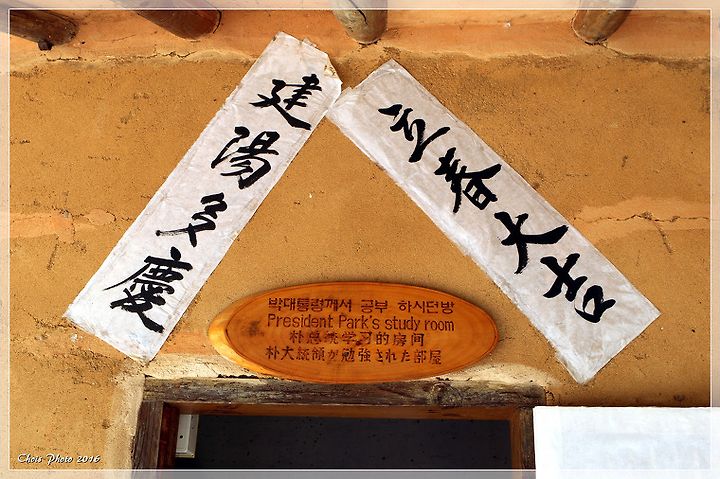 立春大吉
建陽多慶
박대통령께서 공부 하시던방
President Park's study room
朴总统学习的房间
朴大統領が勉強された部屋
Chois Photo 2016